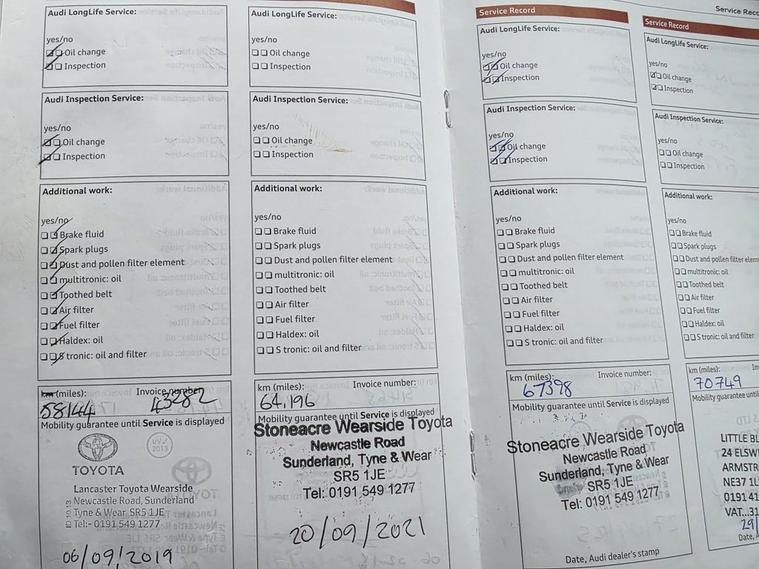 Audi LongLife Service:
yes/no
Oil change
Inspection
Audi Inspection Service:
yes/no
Oil change
Inspection
Additional work:
yes/no
Brake fluid
Spark plugs
Dust and pollen filter element
multitronic: oil
Toothed belt
Air filter
Fuel filter
Haldex: oil
S tronic: oil and filter
km (miles): Invoice number
58144 43282
Mobility guarantee until Service is displayed
TOYOTA
Lancaster Toyota Wearside
Newcastle Road, Sunderland
Tyne & Wear SR5 1JE
Tel:- 0191 549 1277
06/09/2019
Audi LongLife Service:
yes/no
Oil change
Inspection
Audi Inspection Service:
yes/no
Oil change
Inspection
Additional work:
yes/no
Brake fluid
Spark plugs
Dust and pollen filter element
multitronic: oil
Toothed belt
Air filter
Fuel filter
Haldex: oil
S tronic: oil and filter
km (miles): Invoice number:
64,196
Mobility guarantee until Service is displayed
Stoneacre Wearside Toyota
Newcastle Road
Sunderland, Tyne & Wear
SR5 1JE
Tel: 0191 549 1277
20/09/2021
Service Record
Audi LongLife Service:
yes/no
Oil change
Inspection
Audi Inspection Service:
yes/no
Oil change
Inspection
Additional work:
yes/no
Brake fluid
Spark plugs
Dust and pollen filter element
multitronic: oil
Toothed belt
Air filter
Fuel filter
Haldex: oil
S tronic: oil and filter
km (miles): Invoice number:
67398
Mobility guarantee until Service is displayed
Stoneacre Wearside Toyota
Newcastle Road
Sunderland, Tyne & Wear
SR5 1JE
Tel: 0191 549 1277
Date, Audi dealer's stamp
Service Rec
Service Record
Audi LongLife Service:
yes/no
Oil change
Inspection
Audi Inspection Service:
yes/no
Oil change
Inspection
Additional work:
yes/no
Brake fluid
Spark plugs
Dust and pollen filter elem
multitronic: oil
Toothed belt
Air filter
Fuel filter
Haldex: oil
S tronic: oil and filter
km (miles): In
70749
Mobility guarantee until
LITTLE BL
24 ELSW
ARMSTR
NE37 1L
0191 41
VAT...31
29/
Date,